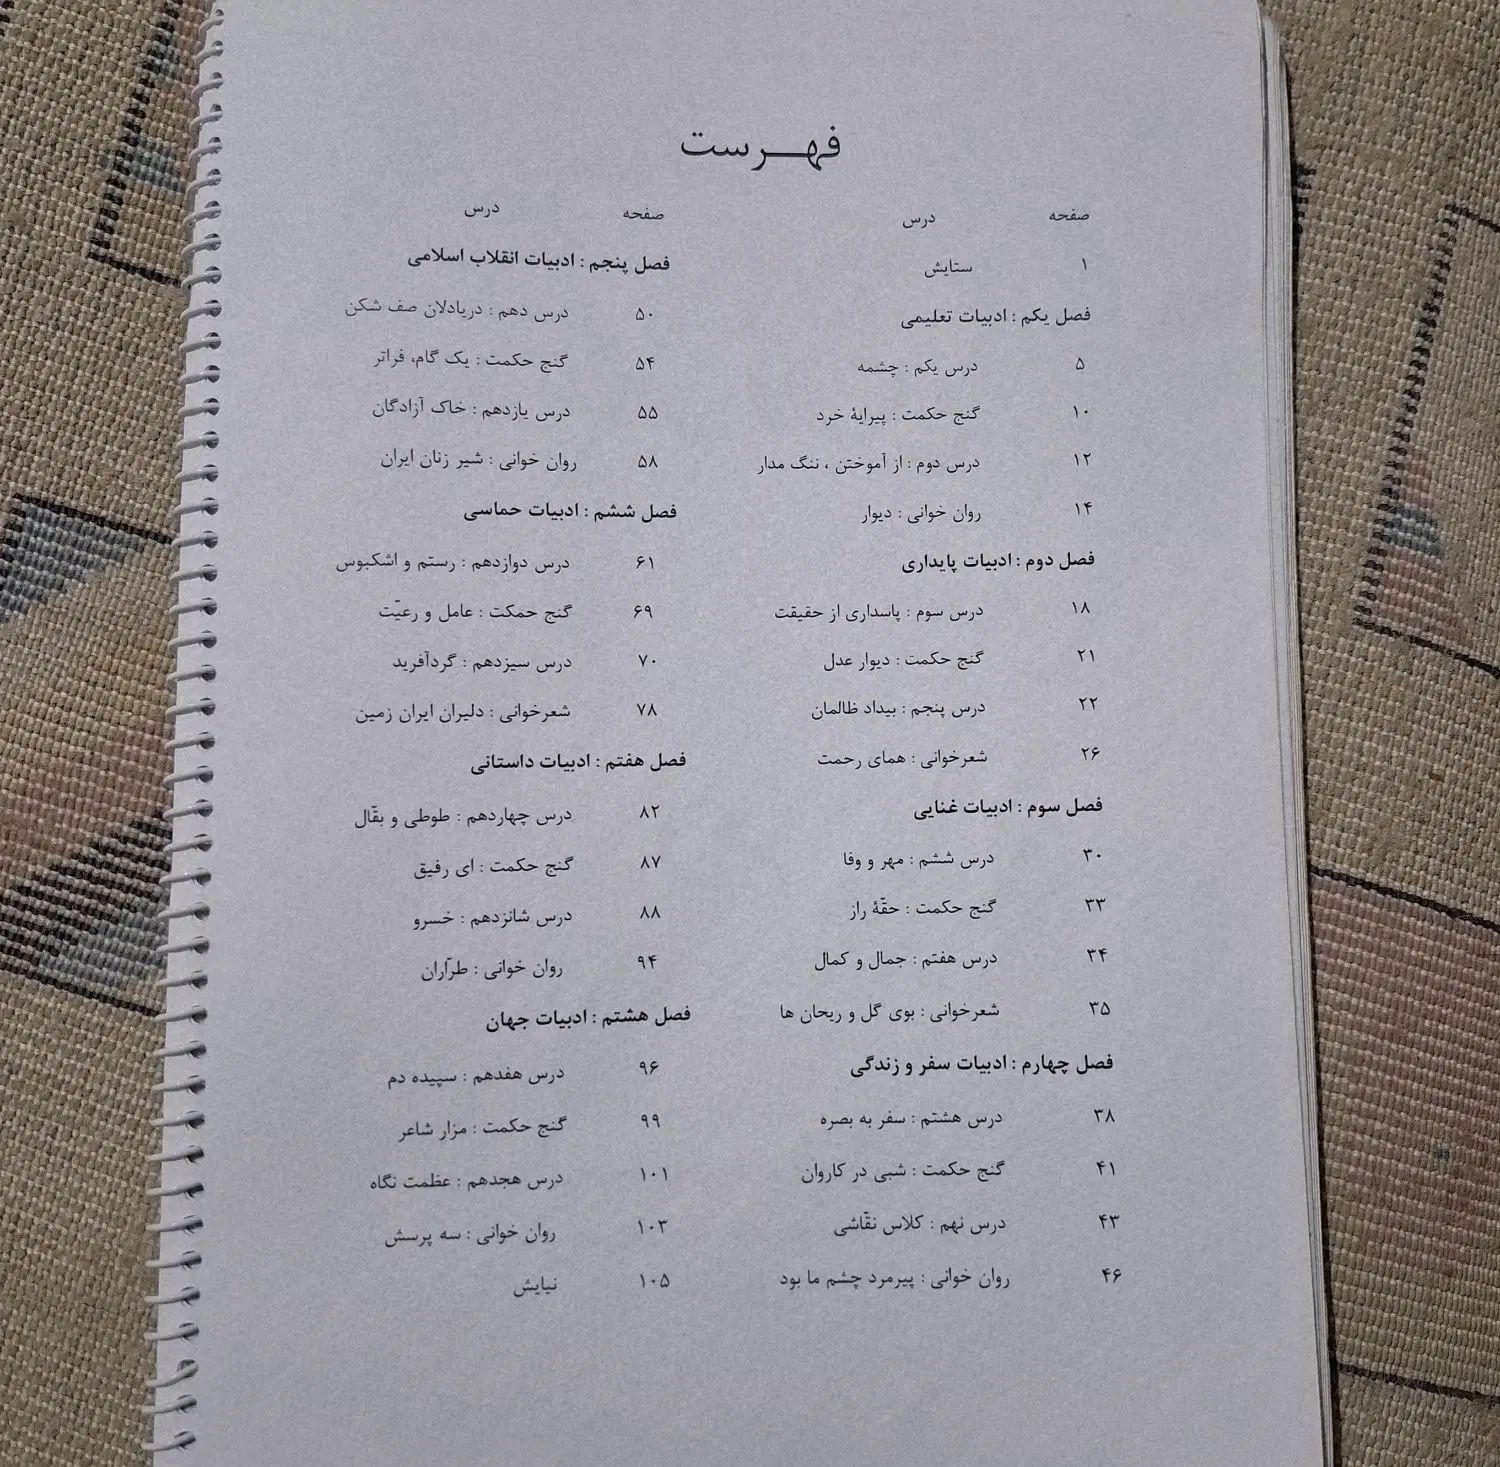 فهرست
صفحه درس
۱ ستایش
فصل یکم : ادبیات تعلیمی
۵ درس یکم : چشمه
۱۰ گنج حکمت : پیرایهٔ خرد
۱۲ درس دوم : از آموختن ، ننگ مدار
۱۴ روان خوانی : دیوار
فصل دوم : ادبیات پایداری
۱۸ درس سوم : پاسداری از حقیقت
۲۱ گنج حکمت : دیوار عدل
۲۲ درس پنجم : بیداد ظالمان
۲۶ شعرخوانی : همای رحمت
فصل سوم : ادبیات غنایی
۳۰ درس ششم : مهر و وفا
۳۳ گنج حکمت : حقّهٔ راز
۳۴ درس هفتم : جمال و کمال
۳۵ شعرخوانی : بوی گل و ریحان ها
فصل چهارم : ادبیات سفر و زندگی
۳۸ درس هشتم : سفر به بصره
۴۱ گنج حکمت : شبی در کاروان
۴۳ درس نهم : کلاس نقّاشی
۴۶ روان خوانی : پیرمرد چشم ما بود
صفحه درس
فصل پنجم : ادبیات انقلاب اسلامی
۵۰ درس دهم : دریادلان صف شکن
۵۴ گنج حکمت : یک گام، فراتر
۵۵ درس یازدهم : خاک آزادگان
۵۸ روان خوانی : شیر زنان ایران
فصل ششم : ادبیات حماسی
۶۱ درس دوازدهم : رستم و اشکبوس
۶۹ گنج حمکت : عامل و رعیّت
۷۰ درس سیزدهم : گردآفرید
۷۸ شعرخوانی : دلیران ایران زمین
فصل هفتم : ادبیات داستانی
۸۲ درس چهاردهم : طوطی و بقّال
۸۷ گنج حکمت : ای رفیق
۸۸ درس شانزدهم : خسرو
۹۴ روان خوانی : طرّاران
فصل هشتم : ادبیات جهان
۹۶ درس هفدهم : سپیده دم
۹۹ گنج حکمت : مزار شاعر
۱۰۱ درس هجدهم : عظمت نگاه
۱۰۳ روان خوانی : سه پرسش
۱۰۵ نیایش